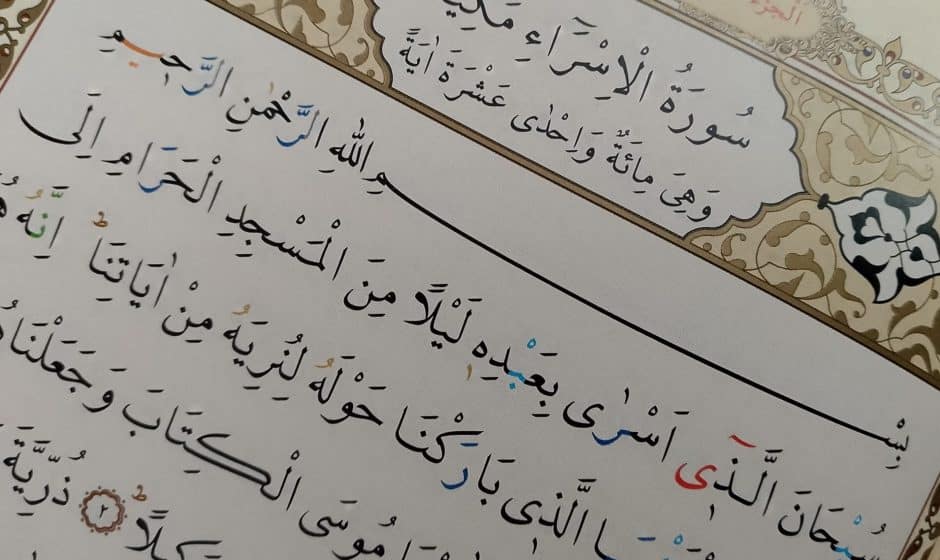 الجزء
سُورَةُ الْاِسْرَاءِ
وَهِيَ مِائَةٌ وَاِحْدٰى عَشْرَةَ اٰيَةً
بِسْمِ اللّٰهِ الرَّحْمٰنِ الرَّحٖيمِ
سُبْحَانَ الَّذٖٓى اَسْرٰى بِعَبْدِهٖ لَيْلًا مِنَ الْمَسْجِدِ الْحَرَامِ اِلَى
الَّذٖى بَارَكْنَا حَوْلَهُ لِنُرِيَهُ مِنْ اٰيَاتِنَاؕ اِنَّهُ
مُوسَى الْكِتَابَ وَجَعَلْنَاهُ
كٖيلًاؕ ٢ ذُرِّيَّةَ